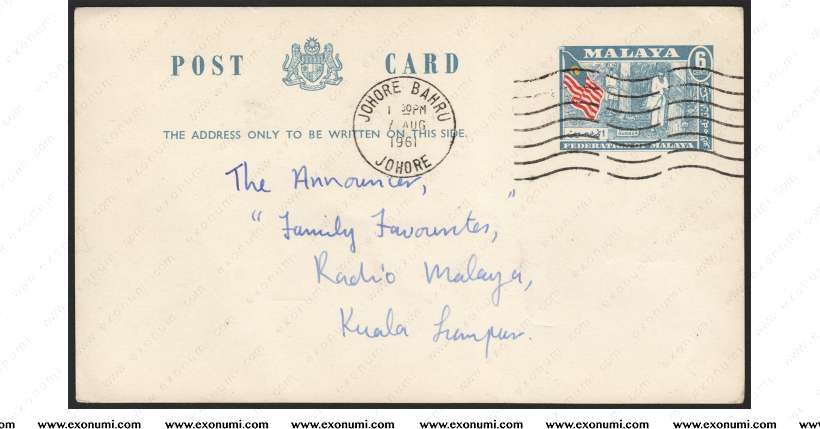 POST CARD
MALAYA
6
JOHORE BAHRU
1 30PM
7 AUG
1961
JOHORE
THE ADDRESS ONLY TO BE WRITTEN ON THIS SIDE.
FEDERATION OF MALAYA
The Announcer,
" Family Favourites, "
Radio Malaya,
Kuala Lumpur.
www.exonumi.com www.exonumi.com www.exonumi.com www.exonumi.com www.exonumi.com www.exonumi.com